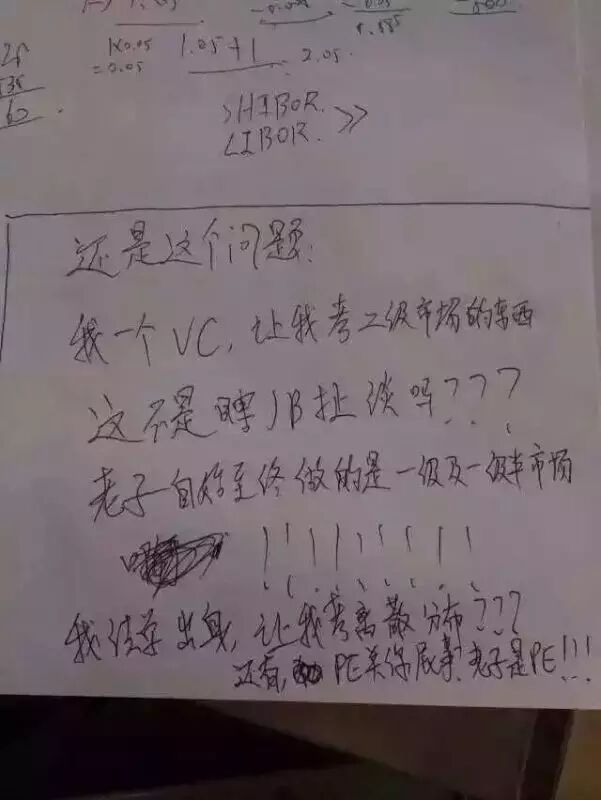 1.05
1×0.05
=0.05
1.05+1
2.05
60
SHIBOR.
LIBOR. >>
还是这个问题:
我一个VC,让我考二级市场的东西
这不是瞎JB扯谈吗???
老子自始至终做的是一级及一级半市场
!!!!!!!!!
我法学出身,让我考离散分布???
还有, PE关你屁事!老子是PE!!!